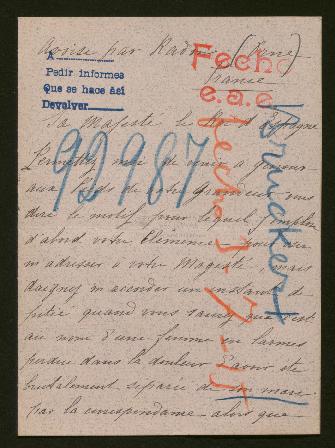 par Kadon (Isère)
France
A
Pedir informes
Que se hace Así
Devolver
Fecho
e.a.e
92987
Bruckert
fecho
Sa Majesté le Roi d'Espagne
Permettez moi de venir à genoux
aux pieds de votre Grandeur vous
dire le motif pour lequel j'implore
d'abord votre Clémence pour oser
m'adresser à votre Majesté, mais
daignez m'accorder un instant de
pitié quand vous saurez que c'est
au nom d'une femme en larmes
perdue dans la douleur d'avoir été
brutalement séparée de son mari
par la correspondance alors que